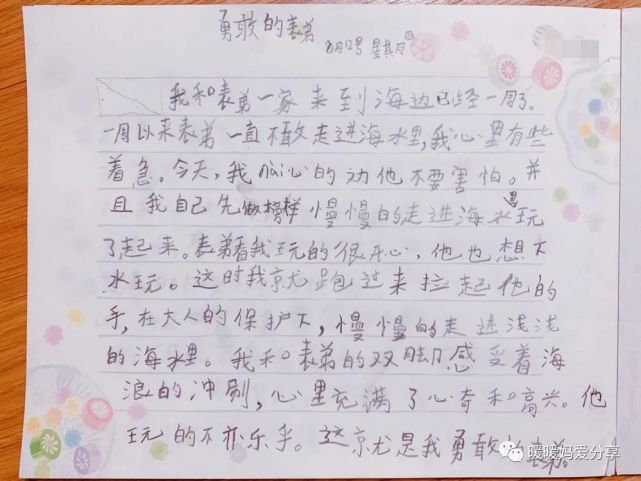 勇敢的表弟
8月12号 星其月四
我和表弟一家来到海边已经一周了。
一周以来表弟一直不敢走进海水里,我心里有些
着急。今天,我心的劝他不要害怕。并
且我自己先做榜样慢慢的走进海水里玩
了起来。表弟看我玩的很开心,他也想下
水玩。这时我就跑过来拉起他的
手,在大人的保护下,慢慢的走进浅浅
的海水里。我和表弟的双脚感受着海
浪的冲刷,心里充满了心奇和高兴。他
玩的不亦乐乎。这就是我勇敢的表弟。
暖暖妈爱分享